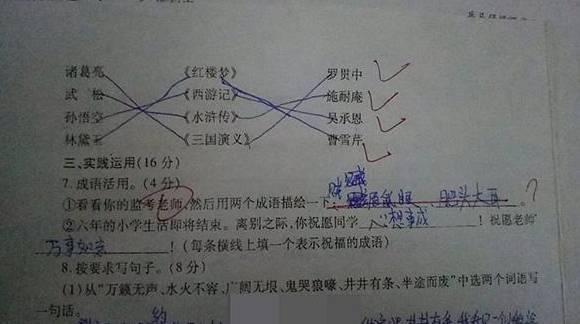 诸葛亮 《红楼梦》 罗贯中
武 松 《西游记》 施耐庵
孙悟空 《水浒传》 吴承恩
林黛玉 《三国演义》 曹雪芹
三、实践运用(16 分)
7. 成语活用。(4 分)
①看看你的监考老师,然后用两个成语描绘一下: 贼眉鼠眼 、 肥头大耳 。?
②六年的小学生活即将结束。离别之际,你祝愿同学 心想事成 ! 祝愿老师
万事如意 ! (每条横线上填一个表示祝福的成语)
8. 按要求写句子。(8 分)
(1)从“万籁无声、水火不容、广阔无垠、鬼哭狼嚎、井井有条、半途而废”中选两个词语写
一句话。